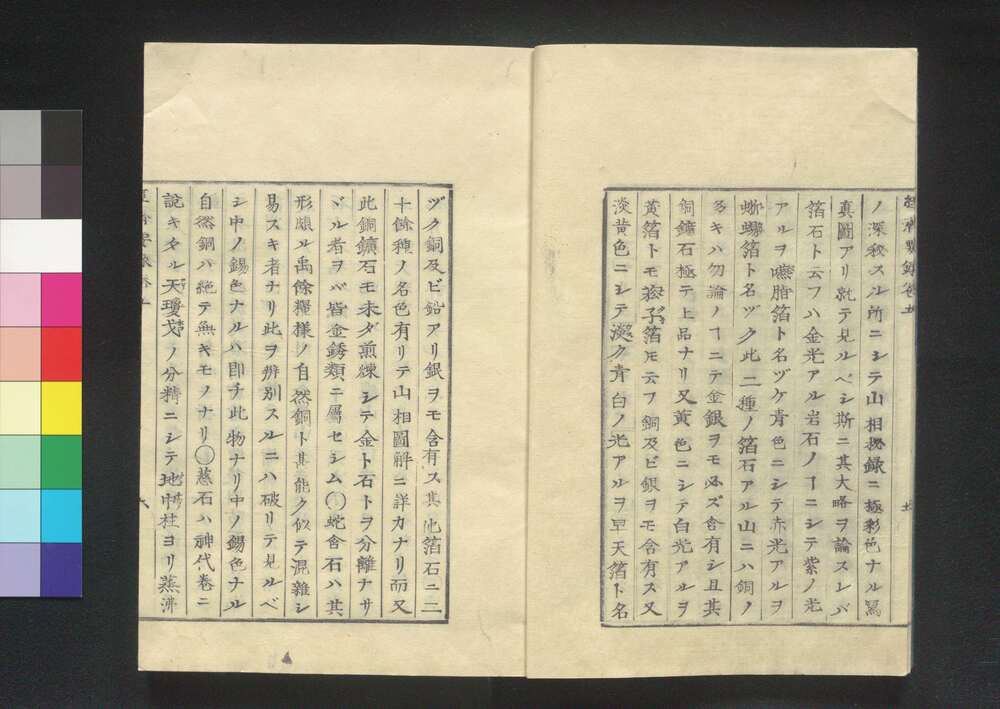 ノ深秘スル所ニシテ山相秘録ニ極彩色ナル寫
真圖アリ就テ見ルベシ斯ニ其大略ヲ論スレバ
箔石ト云フハ金光アル岩石ノヿニシテ紫ノ光
アルヲ臙脂箔ト名ヅケ青色ニシテ赤光アルヲ
蜥蜴箔ト名ヅク此二種ノ箔石アル山ニハ銅ノ
多キハ勿論ノヿニテ金銀ヲモ必ズ含有シ且其
銅鑛石極テ上品ナリ又黄色ニシテ白光アルヲ
黄箔トモ茲子箔モ云フ銅及ビ銀ヲモ含有ス又
淡黄色ニシテ淡ク青白ノ光アルヲ早天箔ト名
ヅク銅及ビ鉛アリ銀ヲモ含有ス其他箔石ニ二
十餘種ノ名色有リテ山相圖解ニ詳カナリ而又
此銅鑛石モ未ダ煎煉シテ金ト石トヲ分離ナサ
ヾル者ヲバ皆金銹類ニ屬セシム○蛇含石ハ其
形頗ル禹餘糧様ノ自然銅ト其能ク似テ混雜シ
易スキ者ナリ此ヲ辨別スルニハ破リテ見ルベ
シ中ノ錫色ナルハ即チ此物ナリ中ノ錫色ナル
自然銅ハ絶テ無キモノナリ○蒸石ハ神代卷ニ
説キタル天瓊戈ノ分精ニシテ地中柱ヨリ蒸沸